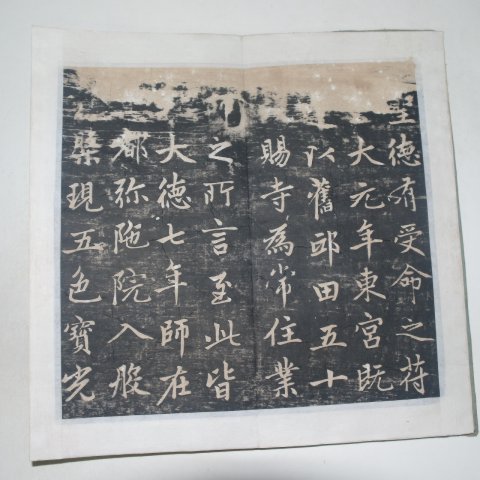 聖德有受命之符
大元年東宮既
以舊邸田五十
賜寺為常住業
之所言至此皆
大德七年師在
都弥陁院入般
槃現五色寶光